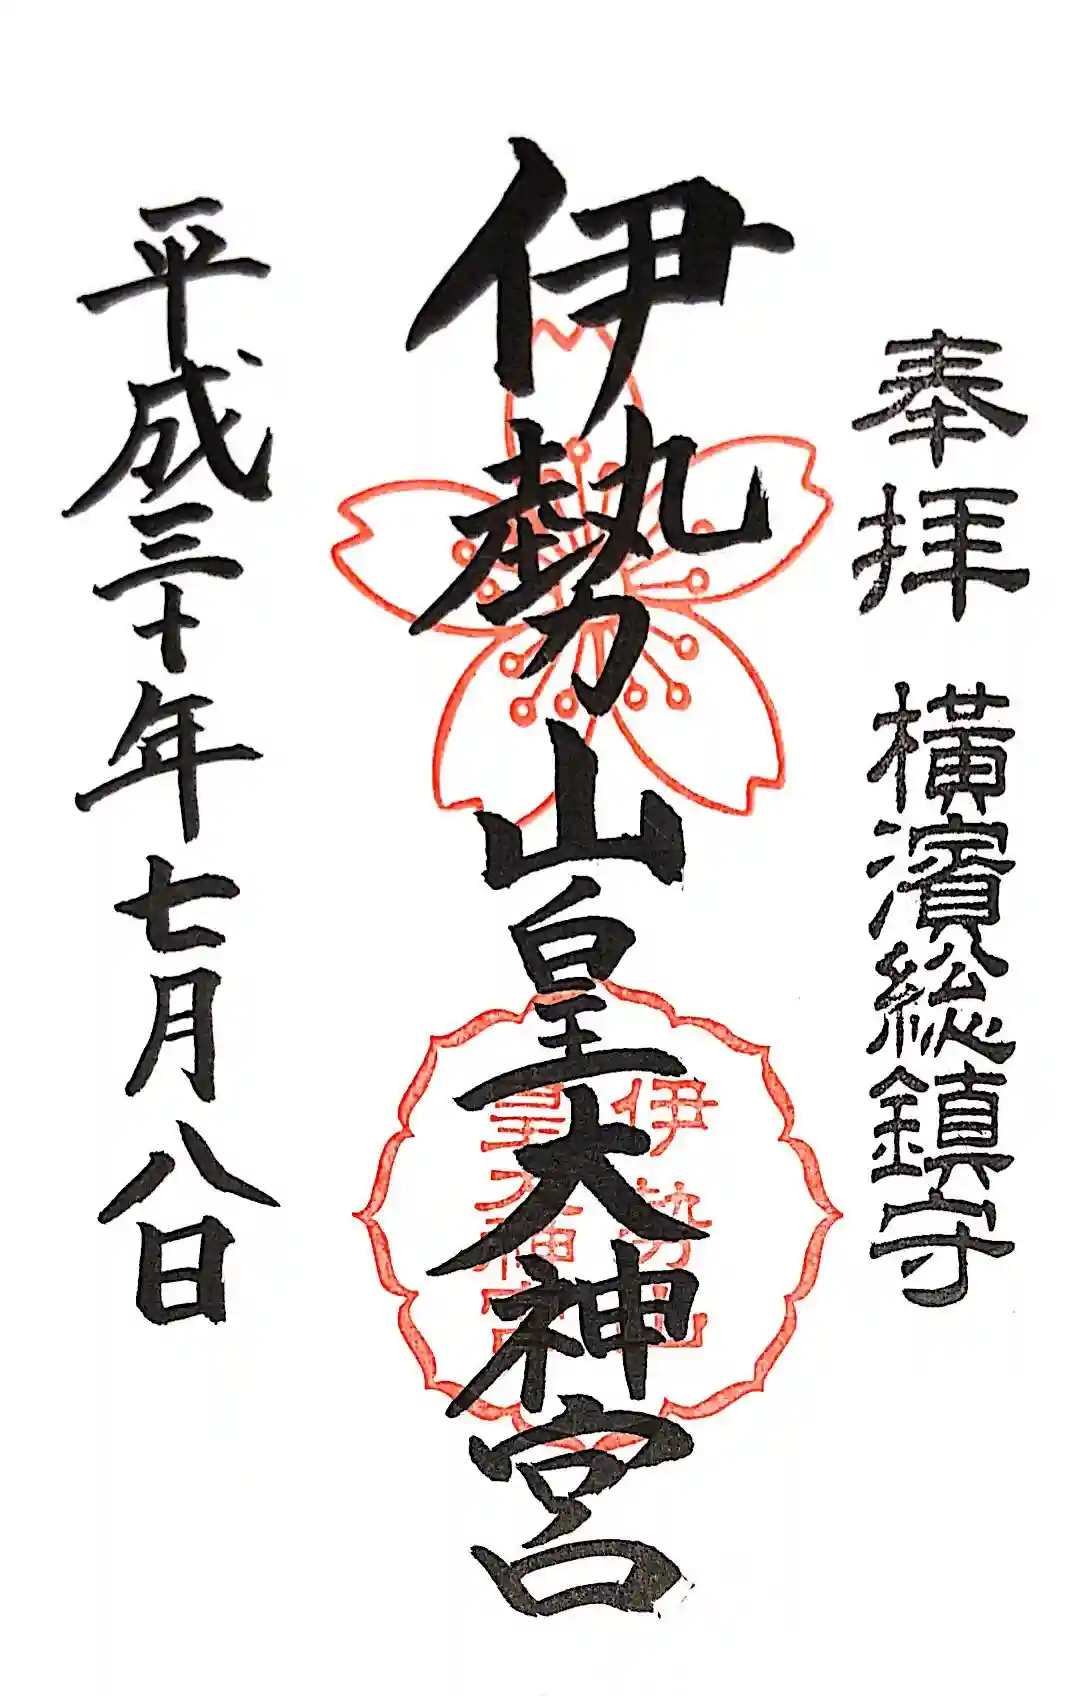 奉拝 横濱総鎮守
伊勢山皇大神宮
伊勢山
皇大神宮
平成三十年七月八日